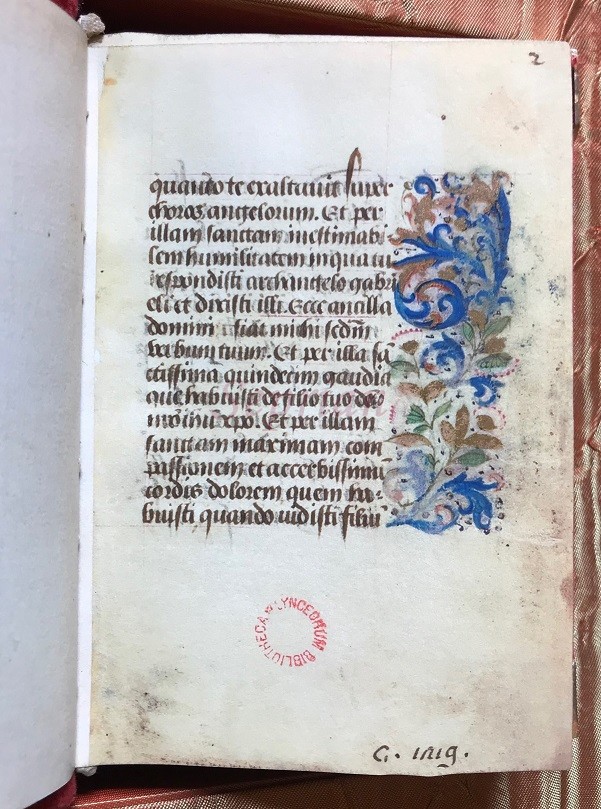 2
quando te exaltavit super
choros angelorum. Et per
illam sanctam inestimabi
lem humilitatem in qua tu
respondisti archangelo gabri
eli et dixisti illi. Ecce ancilla
domini fiat michi scdm̄
verbum tuum. Et per illa sā
ctissima quindecim gaudia
que habuisti de filio tuo dño
nr̄o ihu xp̄o. Et per illam
sanctam maximam com
passionem et acerbissimū
cordis dolorem quem ha-
buisti quando vidisti filiū
BIBLIOTHECA LYNCEORUM